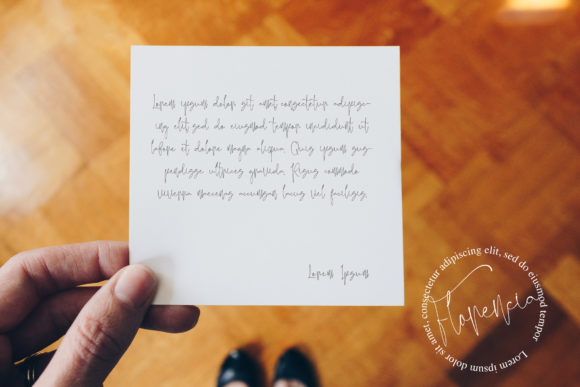 Lorem ipsum dolor sit amet consectetur adipisc-
ing elit sed do eiusmod tempor incididunt ut
labore et dolore magna aliqua. Quis ipsum sus-
pendisse ultrices gravida. Risus commodo
viverra maecenas accumsan lacus vel facilisis.
Lorem Ipsum
Lorem ipsum dolor sit amet, consectetur adipiscing elit, sed do eiusmod tempor
Florencia